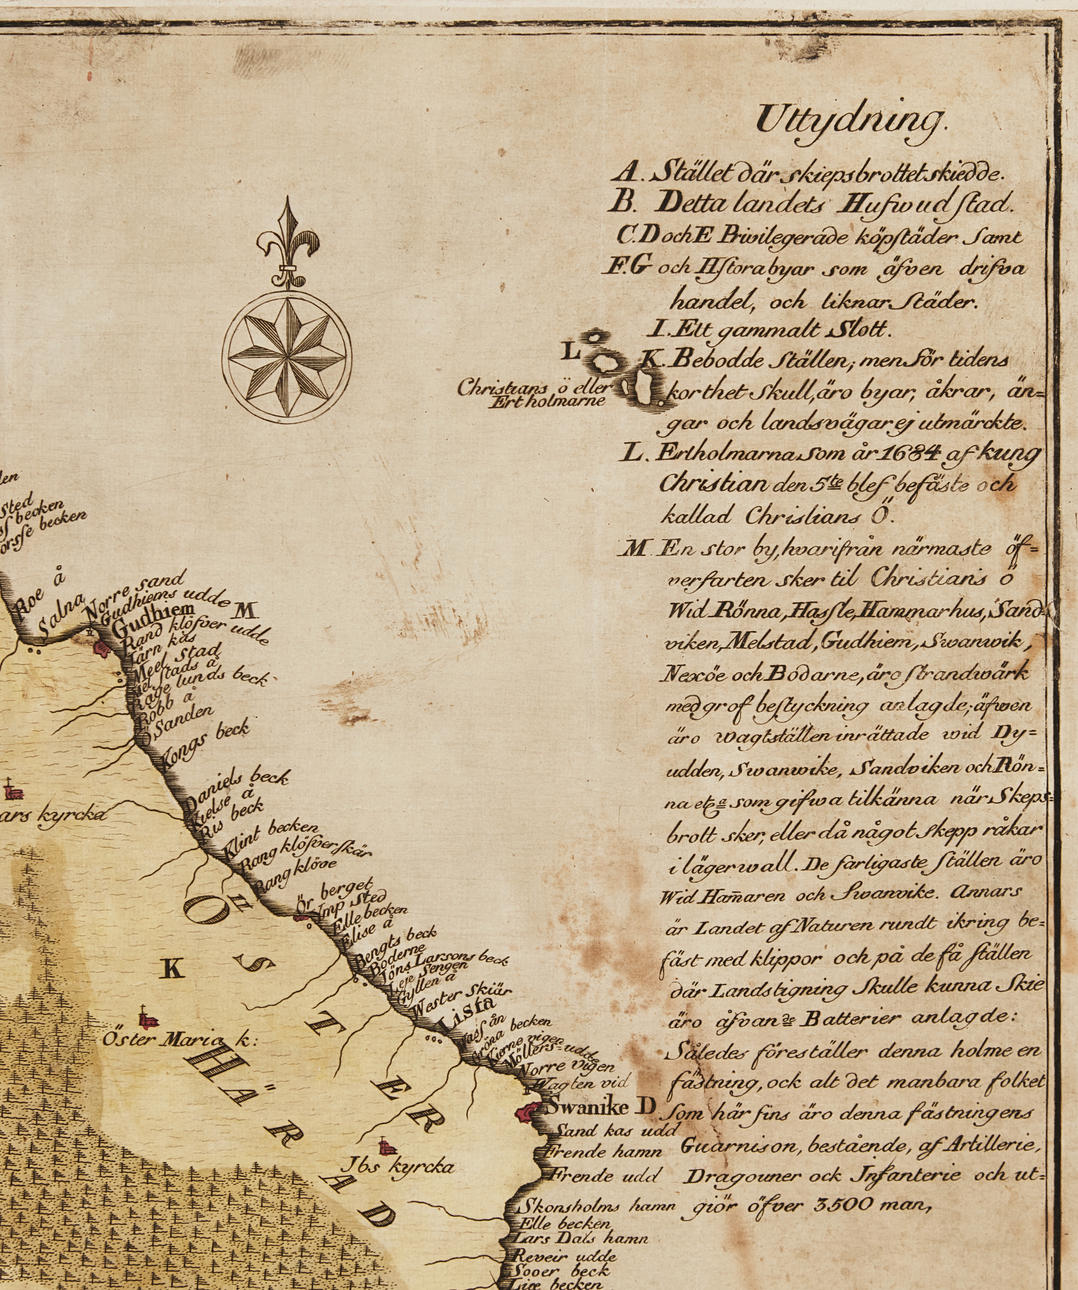 Uttydning.
A. Stället där skiepsbrottet skiedde.
B. Detta landets Hufwudstad.
C. D och E Priwilegerade köpstäder samt
F. G och H stora byar som äfven drifva
handel, och liknar Städer.
I. Ett gammalt Slott.
L
K. Bebodde ställen; men för tidens
Christians ö eller
Ertholmarne
korthet Skull, äro byar, åkrar, än=
gar och landsvägar ej utmärckte.
L. Ertholmarna som år 1684 af kung
Christian den 5te blef befäste och
kallad Christians Ö.
M En stor by, hvarifrån närmaste öf=
verfarten sker til Christians ö
Wid Rönna, Hasle, Hammarhus, Sand=
viken, Melstad, Gudhiem, Swanwik,
Nexöe och Bodarne, äro strandwärk
med grof bestyckning anlagde; äfwen
äro wagtställen inrättade wid Dy=
udden, Swanwike, Sandviken och Rön=
na etc som gifwa tilkänna när Skeps=
brott sker, eller då något skepp råkar
i lägerwall. De farligaste ställen äro
Wid Ham̄aren och Swanvike. Annars
är Landet af Naturen rundt ikring be=
fäst med klippor och på de få ställen
där Landstigning Skulle kunna Skie
äro äfvan Batterier anlagde:
Således föreställer denna holme en
fästning, ock alt det manbara folket
som här fins äro denna fästningens
Guarnison, bestående, af Artillerie,
Dragouner ock Infanterie och ut=
giör öfver 3500 man,
Sted
becken
becken
Roe å
Salna
Norre sand
Gudhiems udde
Gudhiem M
Rand klöfver udde
Tärn kås
Meel Stad
stads å
lunds beck
Bobb å
Sanden
Kongs beck
Daniels beck
Kelse å
Ris beck
ars kyrcka
Klint becken
Rang klöfver skär
Rang klöve
Ör berget
Imp sted
Elle becken
Elise å
Bengts beck
Boderne
Jöns Larsons beck
Sengen
Gyllen å
Wester Skiär
Lista
K
Öster Maria k:
ÖSTER
HÄRAD
becken
Kierne vigen
Möllers udde
Norre vigen
Wagten vid
Swanike D
Sand kås udd
Frende hamn
Ibs kyrcka
Frende udd
Skonsholms hamn
Elle becken
Lars Dals hamn
Reveir udde
Sooer beck
Lise becken